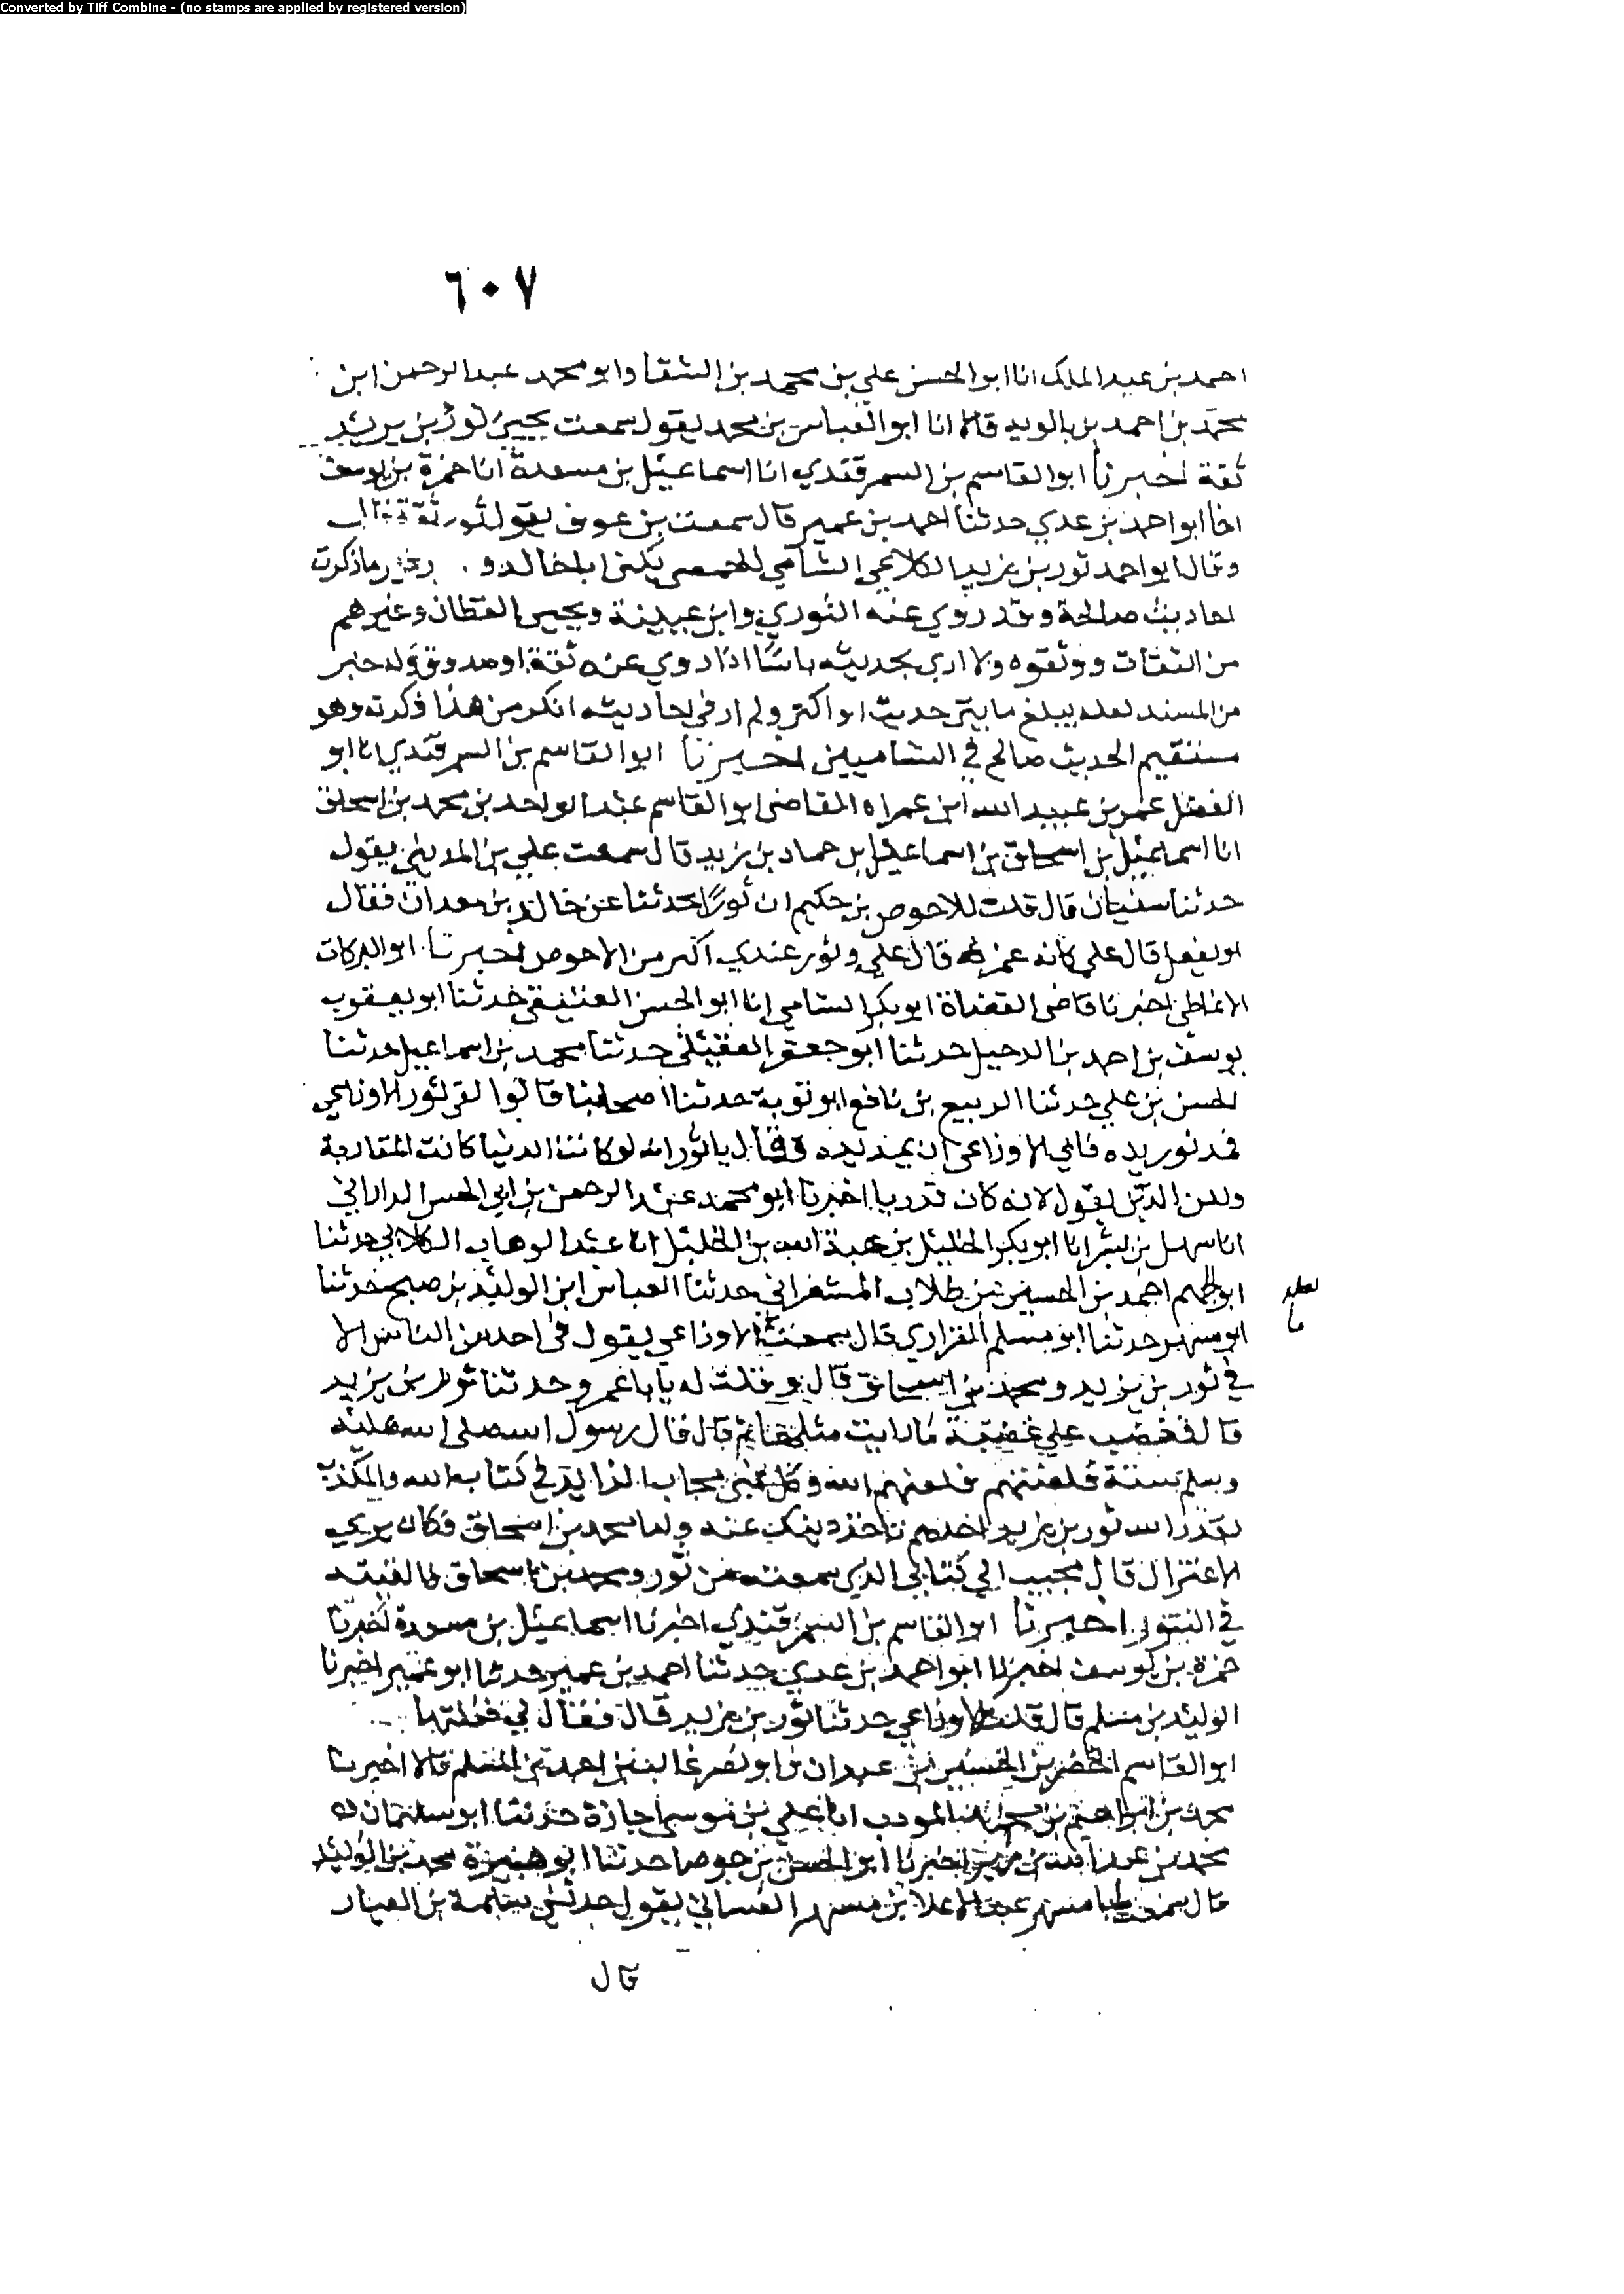 Converted by Tiff Combine - (no stamps are applied by registered version)
٦٠٧
احمد بن عبد الملك انا ابو الحسن علي بن محمد بن السقا وابو محمد عبد الرحمن ابن
محمد بن احمد بن بالويه قالا انا ابو العباس بن محمد يقول سمعت يحيى ثور بن يزيد
ثقة اخبرنا ابو القاسم بن السمرقندي انا اسماعيل بن مسعدة انا حمزة بن يوسف
انا ابو احمد بن عدي حدثنا احمد بن عمير قال سمعت بن عوف يقول ثور ثقة
وقال ابو احمد ثور بن يزيد الكلاعي الشامي الحمصي يكنى ابا خالد و غير ما ذكرت
احاديث صالحة وقد روي عنه الثوري وابن عيينة ويحيى القطان وغيرهم
من الثقات ووثقوه ولا ارى بحديثه باسًا اذا روي عنه ثقة او صدوق وله خبر
من المسند لعله يبلغ مايتي حديث او اكثر ولم ار في احاديثه انكر من هذا ذكرته وهو
مستقيم الحديث صالح في الشاميين اخبرنا ابو القاسم بن السمرقندي انا ابو
الفضل عمر بن عبيد الله ابن عمر انا القاضى ابو القاسم عبد الواحد بن محمد بن اسحاق
انا اسماعيل بن اسحاق بن اسماعيل بن حماد بن زيد قال سمعت علي بن المديني يقول
حدثنا سفيان قال قلت للاحوص بن حكيم ان ثورًا حدثنا عن خالد بن معدان فقال
او يفعل قال علي كانه غمزه قال علي وثور عندي اكبر من الاحوص اخبرنا ابو البركات
الانماطي اخبرنا قاضى القضاة ابو بكر الشامي انا ابو الحسن العتيقي حدثنا ابو يعقوب
يوسف بن احمد بن الدخيل حدثنا ابو جعفر العقيلي حدثنا محمد بن اسماعيل حدثنا
الحسن بن علي حدثنا الربيع بن نافع ابو توبة حدثنا اصحابنا قالوا لقي ثور الاوزاعي
فمد ثور يده فابي الاوزاعي ان يمد يده وقال يا ثور انه لو كانت الدنيا كانت المقاربة
ولكن الدين يقول لانه كان قدريا اخبرنا ابو محمد عبد الرحمن بن ابي الحسن الداراني
انا سهل بن بشر انا ابو بكر الخليل بن هبة الله بن الخليل انا عبد الوهاب الكلابي حدثنا
ابو الجهم احمد بن الحسين بن طلاب المشغراني حدثنا العباس ابن الوليد بن صبح حدثنا
ابو مسهر حدثنا ابو مسلم الفزاري قال سمعت الاوزاعي يقول في احد من الناس الا
في ثور بن يزيد ومحمد بن اسحاق قال وقلت له يابا عمرو حدثنا ثور بن يزيد
قال فغضب علي غضبة ما رايت مثلها ثم قال قال رسول الله صلى الله عليه
وسلم ستة لعنتهم فلعنهم الله وكل نبي مجاب الزايد في كتاب الله والمكذب
بقدر الله ثور بن يزيد احدهم تاخذ دينك عنه واما محمد بن اسحاق فكان يرى
الاعتزال قال فجيت الى كتابي الذي سمعته من ثور ومحمد بن اسحاق فالقيته
في التنور اخبرنا ابو القاسم بن السمرقندي اخبرنا اسماعيل بن مسعدة اخبرنا
حمزة بن يوسف اخبرنا ابو احمد بن عدي حدثنا احمد بن عمير حدثنا ابو عمير اخبرنا
الوليد بن مسلم قال قلت للاوزاعي حدثنا ثور بن يزيد قال فقال لي فعلتها
ابو القاسم الخضر بن الحسين بن عبدان وابو نصر غالب بن احمد بن المسلم قالا اخبرنا
محمد بن ابراهيم بن محمد المودب انا علي بن موسى اجازة حدثنا ابو سليمان
محمد بن عبد الله بن زبر اخبرنا ابو الحسن بن جوصا حدثنا ابو هبيرة محمد بن الوليد
قال سمعت ابا مسهر عبد الاعلا بن مسهر الغساني يقول حدثني سلمة بن العيار
قال